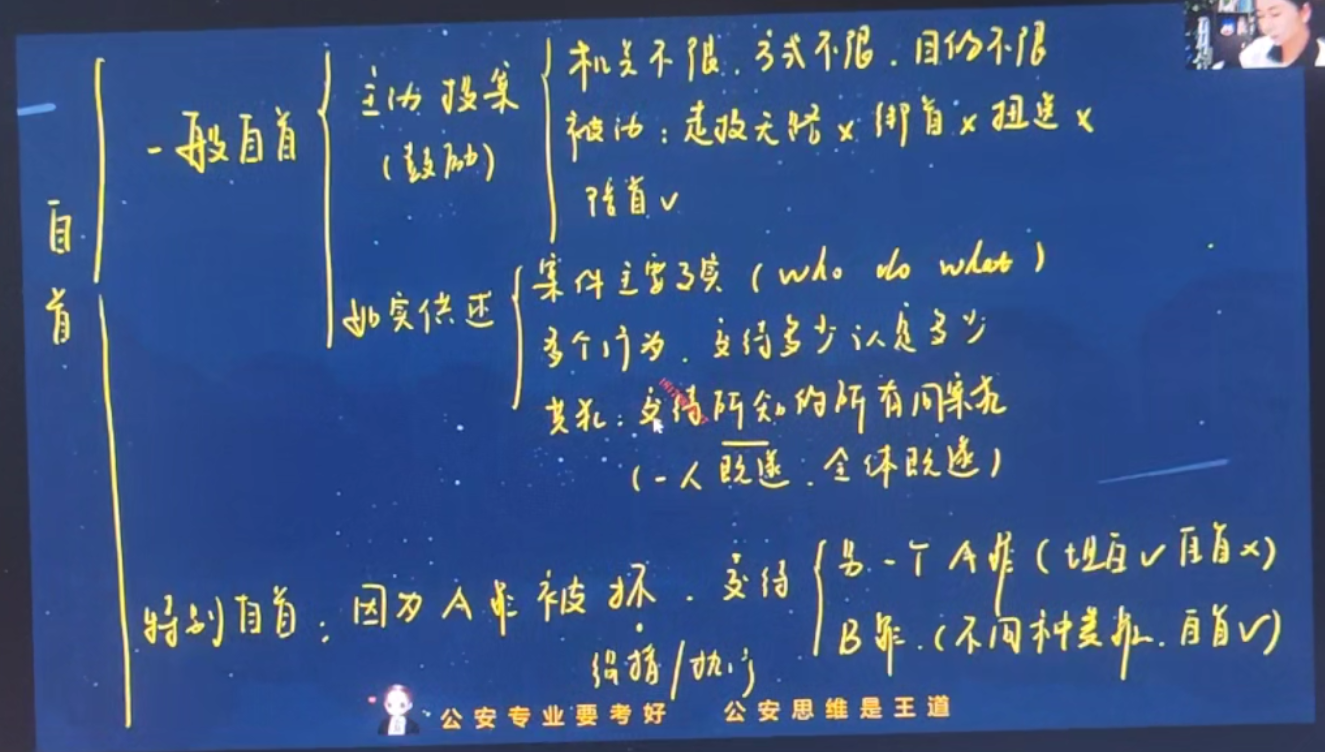 自首
一般自首
主动投案
(鼓励)
机关不限、方式不限、目的不限
被动：走投无路 × 绑首 × 扭送 ×
陪首 √
如实供述
案件主要事实 (who do what)
多个行为、交待多少认定多少
共犯：交待所知的所有同案犯
(一人既遂、全体既遂)
特别自首：因为A罪被抓、交待
另一个A罪 (坦白√ 自首×)
B罪、(不同种类罪、自首√)
公安专业要考好 公安思维是王道